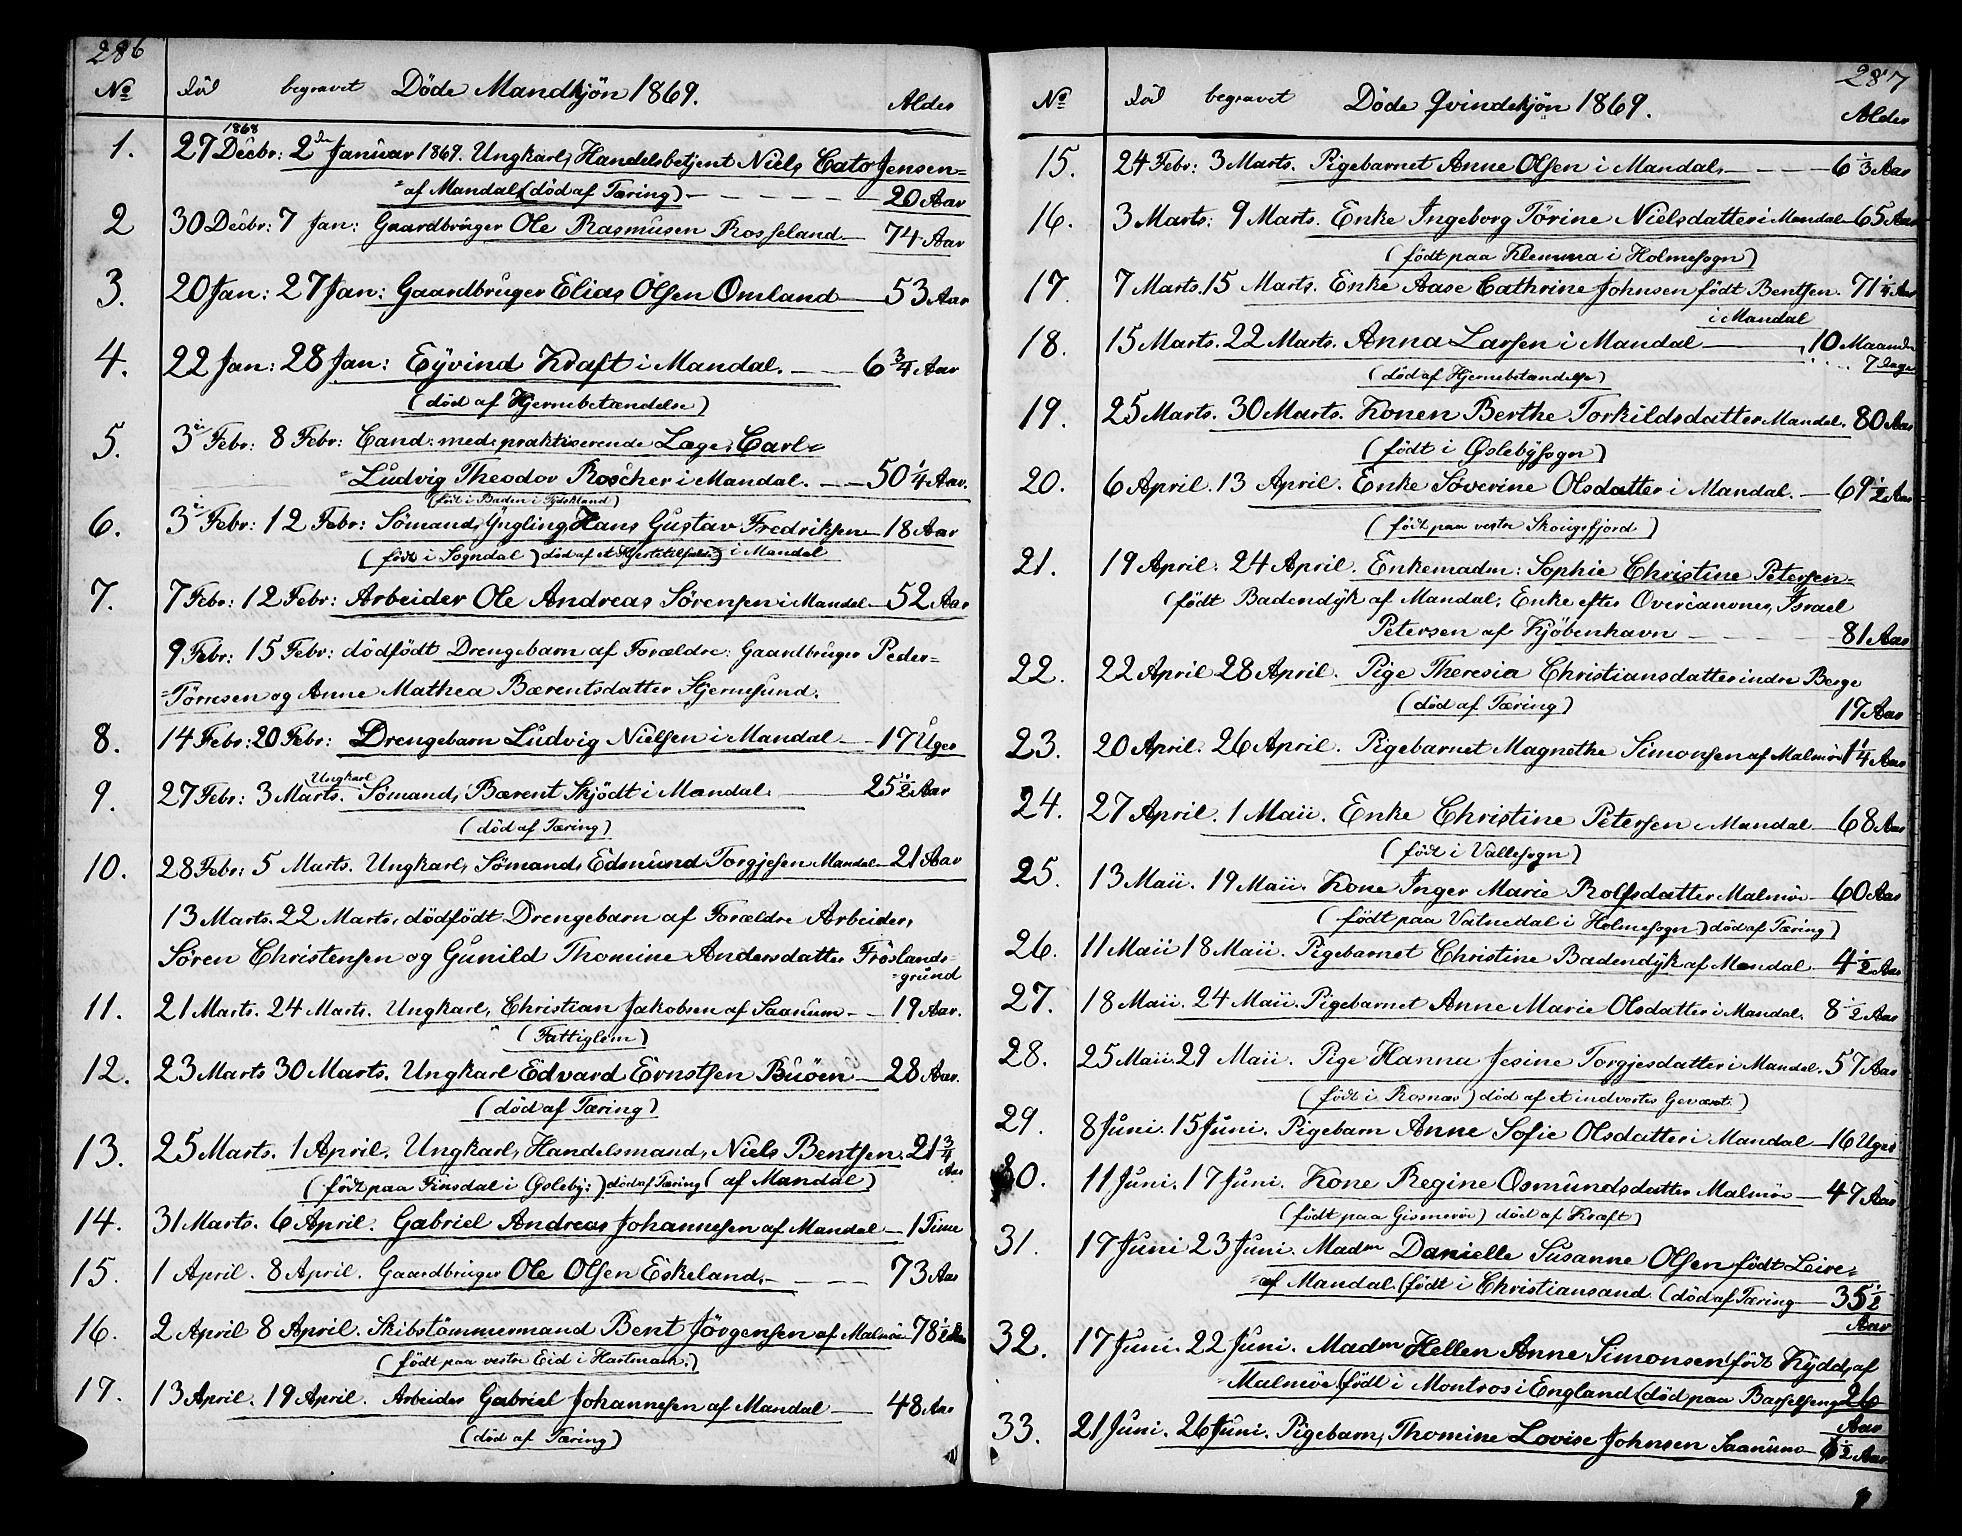 286
No død begravet Döde Mandkjön 1869. Alder
1. 27 Decbr: 1868 2den Januar 1869. Ungkarl, Handelsbetjent Niels Cato Jensen=
=af Mandal, (död af Tæring) 20 Aar
2 30 Decbr: 7 Jan: Gaardbrüger Ole Rasmusen Rosseland 74 Aar
3. 20 Jan: 27 Jan: Gaardbrüger Elias Olsen Omland 53 Aar
4. 22 Jan: 28 Jan: Eÿvind Kraft i Mandal. 6 3/4 Aar
(död af Hjernebetændelse)
5. 3 Febr: 8 Febr: Cand: med: praktiserende Læge, Carl=
=Ludvig Theodor Roscher i Mandal. 50 1/4 Aar.
(født i Baden i Tydskland)
6. 3 Febr: 12 Febr: Sömand, Yngling, Hans Gustav Fredriksen 18 Aar
(født i Sogndal) död af et i Mandal
7. 7 Febr: 12 Febr: Arbeider Ole Andreas Sörensen i Mandal 52 Aar
9 Febr: 15 Febr: dödfödt Drengebarn af Forældre: Gaardbrüger Peder=
=Törresen og Anne Mathea Bærentsdatter Skjernesund.
8. 14 Febr: 20 Febr: Drengebarn Ludvig Nielsen i Mandal 17 Uger
9. 27 Febr: 3 Marts. Ungkarl Sömand, Bærent Skjödt i Mandal. 25 1/2 Aar
(död af Tæring)
10. 28 Febr: 5 Marts. Ungkarl, Sömand, Edmund Torgjesen Mandal 21 Aar
13 Marts. 22 Marts, dödfödt Drengebarn af Forældre Arbeider,
Sören Christensen og Gunild Thomine Andersdatter Fröslands=
=grund
11. 21 Marts. 24 Marts. Ungkarl, Christian Jakobsen af Saanum 19 Aar.
(Fattiglem)
12. 23 Marts 30 Marts. Ungkarl Edvard Ernstsen Buöen 28 Aar.
(död af Tæring)
13. 25 Marts. 1 April. Ungkarl, Handelsmand, Niels Bentsen. 21 3/4 Aar
(født paa Finsdal i Öslebÿ:) död af Tæring (af Mandal)
14. 31 Marts. 6 April. Gabriel Andreas Johannesen af Mandal 1 Time
15. 1 April. 8 April. Gaardbrüger Ole Olsen Eskeland, 73 Aar
16. 2 April 8 April. Skibstömmermand Bent Jörgensen af Malmöe 78 1/2 Aar
(født paa vestre Eid i Hartmark.)
17. 13 April. 19 April. Arbeider Gabriel Johannesen af Mandal 48 Aar
(död af Tæring)
287
No død begravet Döde Qvindekjön 1869. Alder
15. 24 Febr: 3 Marts. Pigebarnet Anne Olsen i Mandal, 6 1/3 Aar
16. 3 Marts: 9 Marts. Enke Ingeborg Törine Nielsdatter i Mandal 65 Aar
(født paa Klemma i Holmesogn)
17. 7 Marts. 15 Marts. Enke Aase Cathrine Johnsen født Bentsen. 71 1/4 Aar
i Mandal
18. 15 Marts. 22 Marts. Anna Larsen i Mandal 10 Maander
7 dage
(død af Hjernebetændelse)
19. 25 Marts. 30 Marts. Konen Berthe Torkildsdatter Mandal. 80 Aar
(født i Öslebÿsogn)
20. 6 April. 13 April. Enke Söverine Olsdatter i Mandal. 69 1/2 Aar
(født paa vestre Skougsfjord)
21. 19 April. 24 April. Enkemadm: Sophie Christine Petersen=
(født Badendÿk af Mandal, Enke efter Overcanoner, Israel
Petersen af Kjöbenhavn 81 Aar
22. 22 April 28 April. Pige Theresia Christiansdatter indre Berge
(død af Tæring) 17 Aar
23. 20 April. 26 April. Pigebarnet Magnethe Simonsen af Malmöe 1 1/4 Aar
24. 27 April. 1 Maii. Enke Christine Petersen Mandal 68 Aar
(født i Vallesogn)
25. 13 Maii. 19 Maii. Kone Inger Marie Rolfsdatter Malmöe 60 Aar
(født paa Vatnedal i Holmesogn) død af Tæring)
26. 11 Maii 18 Maii. Pigebarnet Christine Badendÿk af Mandal 4 1/2 Aar
27. 18 Maii. 24 Maii. Pigebarnet Anne Marie Olsdatter i Mandal. 8 1/2 Aar
28. 25 Maii. 29 Maii. Pige Hanna Jesine Torgjesdatter i Mandal. 57 Aar
(født i Rosnæs) død af et indvortes Gevæxt.)
29. 8 Juni. 15 Juni. Pigebarn Anne Sofie Olsdatter i Mandal 16 Uger
30. 11 Juni. 17 Juni. Kone Regine Osmundsdatter Malmöe 47 Aar
(født paa Gismeröe) død af Kræft)
31. 17 Juni 23 Juni. Madm Danielle Susanne Olsen født Leire=
=af Mandal. (født i Christiansand (død af Tæring 35 1/2
Aar
32. 17 Juni. 22 Juni. Madm Hellen Anne Simonsen født Kÿdd, af
Malmöe (født i Montros i England (død paa Barselseng 26
Aar
33. 21 Juni. 26 Juni. Pigebarn, Thomine Lovise Johnsen Saanum 6 1/2 Aar